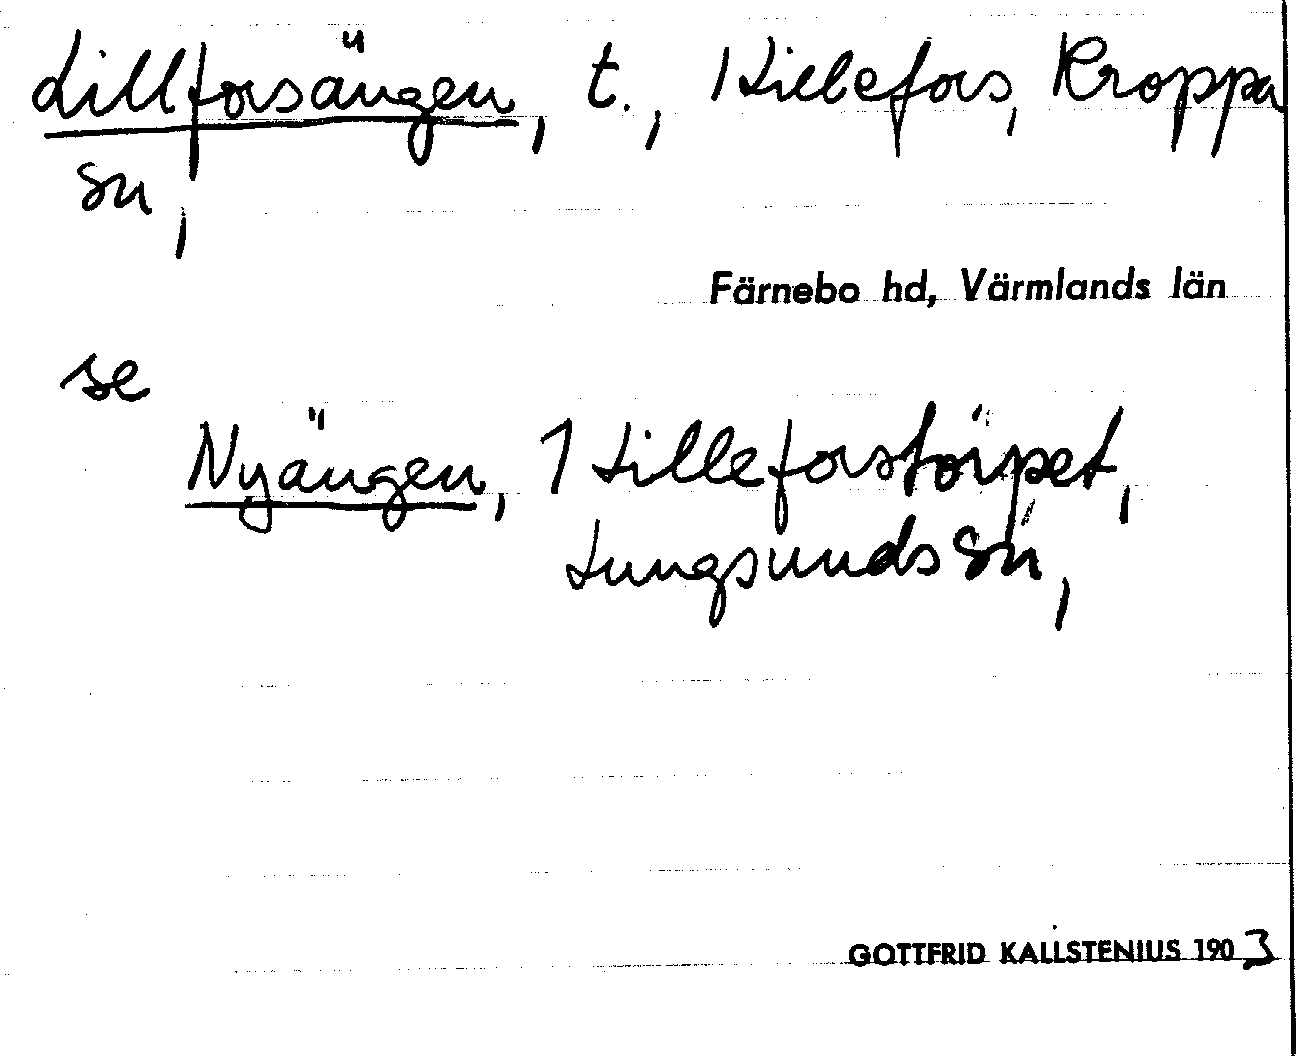 Lillforsängen, t., 1 Lillefors, Kroppa
sn,
Färnebo hd, Värmlands län
se
Nyängen, 1 Lilleforstorpet,
Lungsunds sn,
GOTTFRID KALLSTENIUS 1903